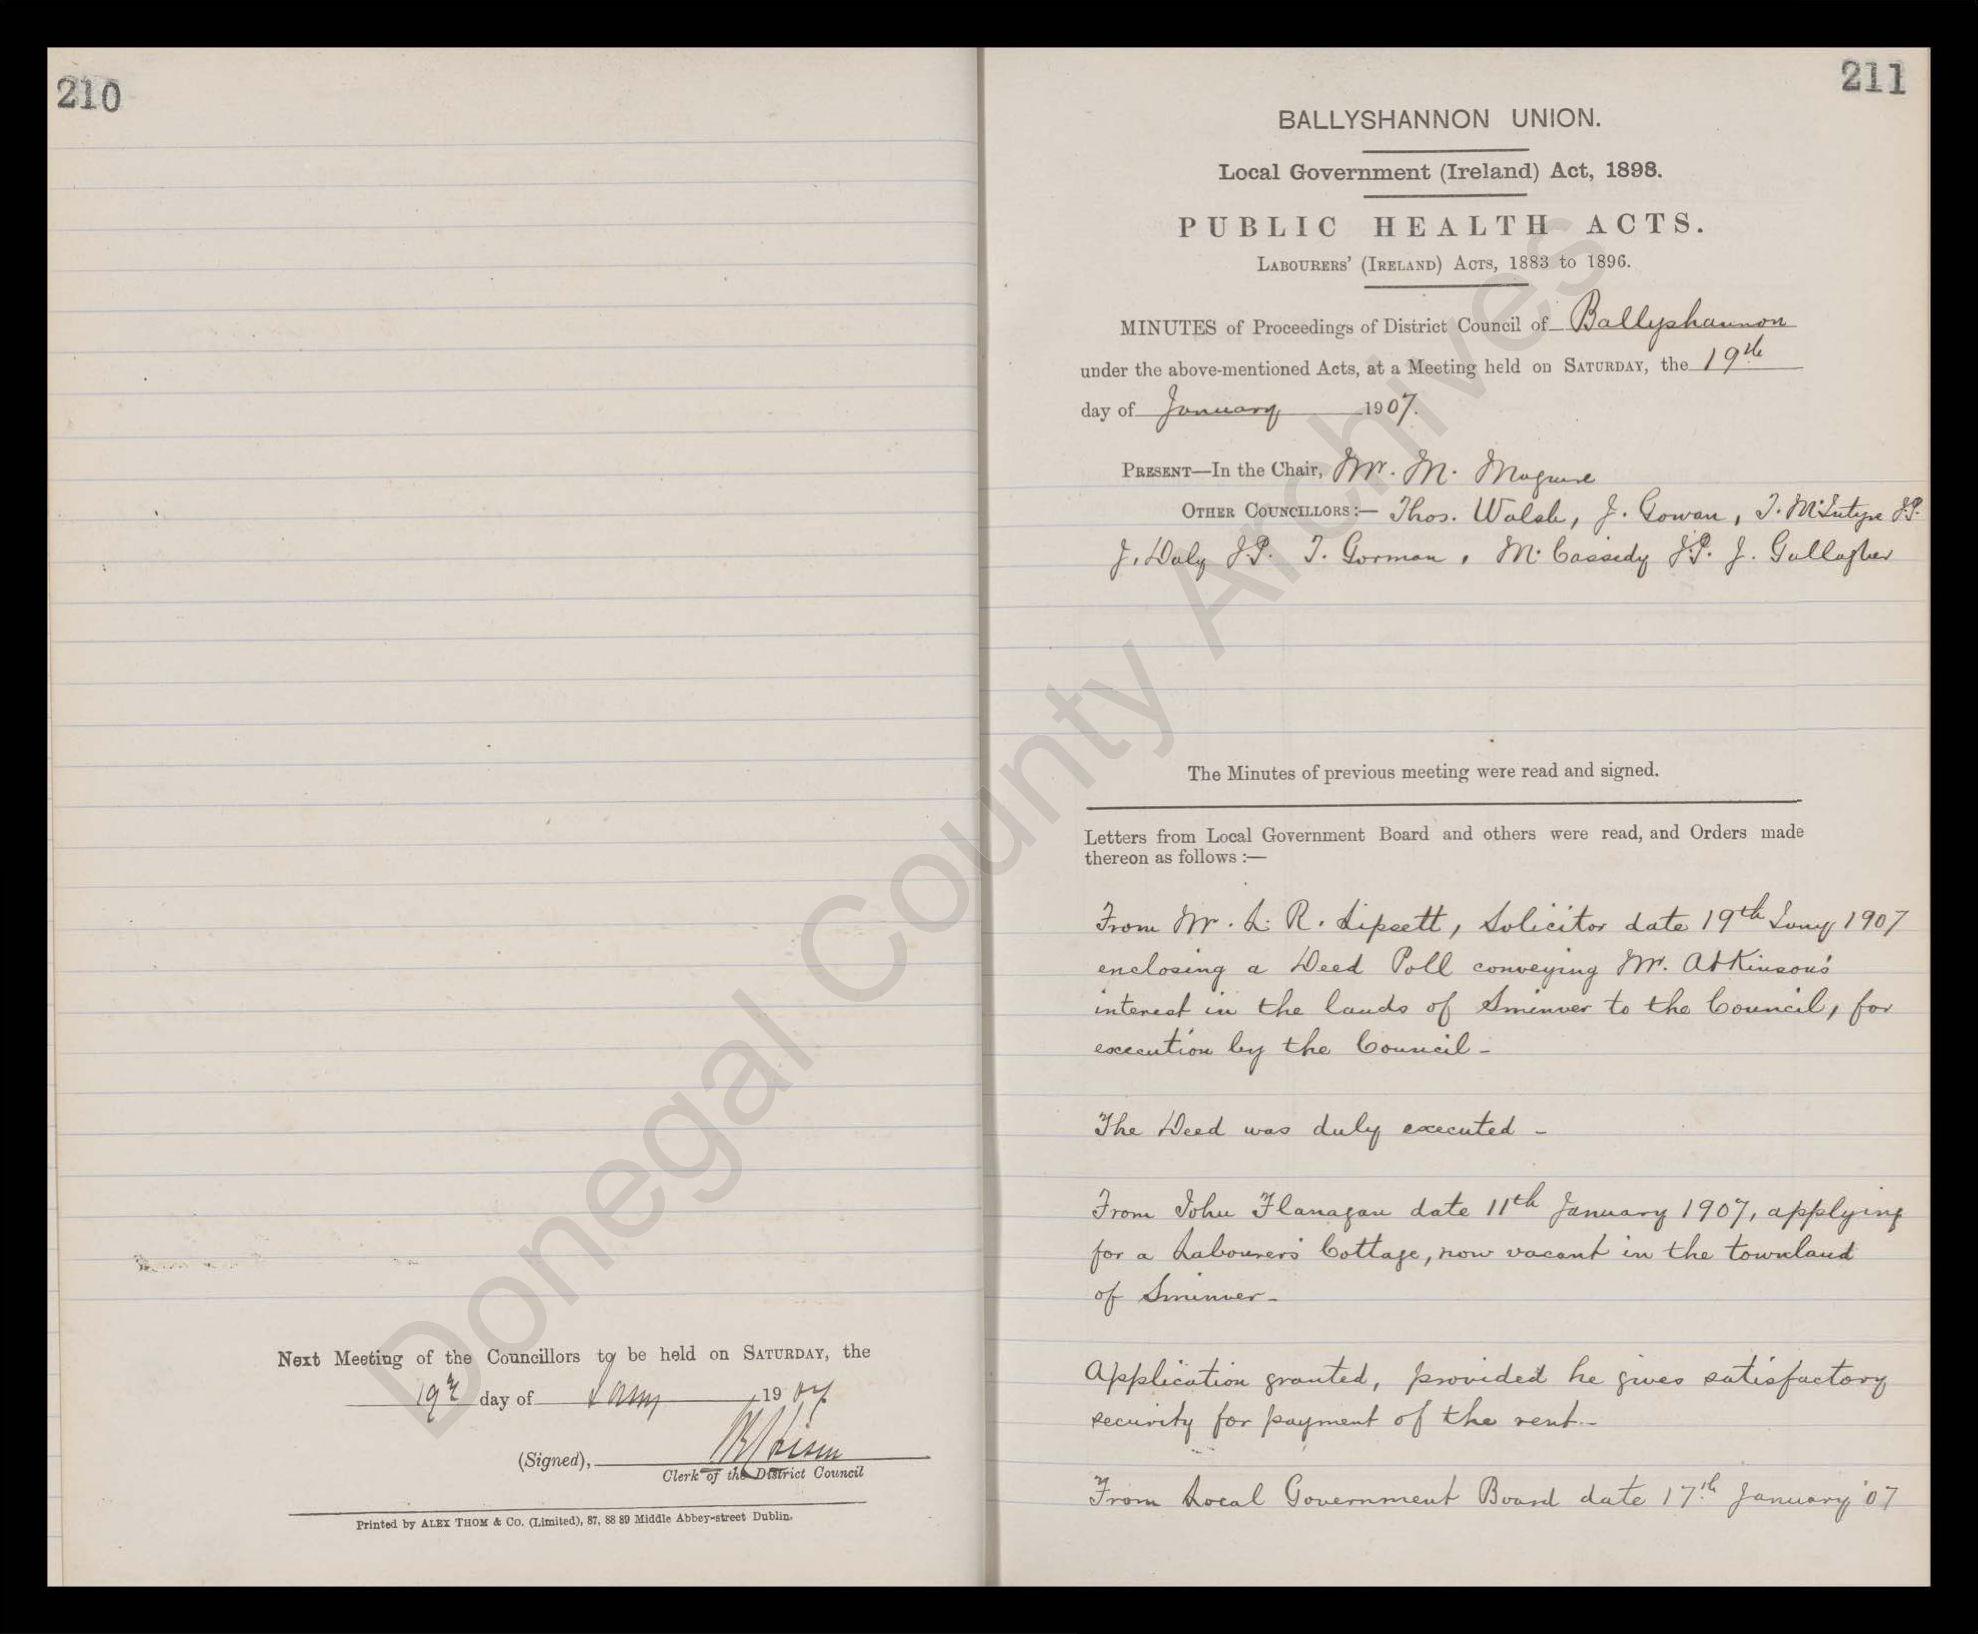 210
Next Meeting of the Councillors to be held on SATURDAY, the
19th day of Jany 1907
(Signed),
Clerk of the District Council
Printed by ALEX THOM & CO. (Limited), 87, 88 89 Middle Abbey-street Dublin.
211
BALLYSHANNON UNION.
Local Government (Ireland) Act, 1898.
PUBLIC HEALTH ACTS.
LABOURERS' (IRELAND) ACTS, 1883 to 1896.
MINUTES of Proceedings of District Council of Ballyshannon
under the above-mentioned Acts, at a Meeting held on SATURDAY, the 19th
day of January 1907.
PRESENT—In the Chair, Mr. M. Maguire
OTHER COUNCILLORS:— Thos. Walsh, J. Gowan, T. McIntyre J.P.
J. Daly J.P. T. Gorman, M. Cassidy J.P. J. Gallagher
The Minutes of previous meeting were read and signed.
Letters from Local Government Board and others were read, and Orders made
thereon as follows :—
From Mr. L. R. Lipsett, Solicitor date 19th Jany 1907
enclosing a Deed Poll conveying Mr. Atkinson's
interest in the lands of Sminver to the Council, for
execution by the Council -
The Deed was duly executed -
From John Flanagan date 11th January 1907, applying
for a Labourers' Cottage, now vacant in the townland
of Sminver -
Application granted, provided he gives satisfactory
security for payment of the rent -
From Local Government Board date 17th January '07
Donegal County Archives